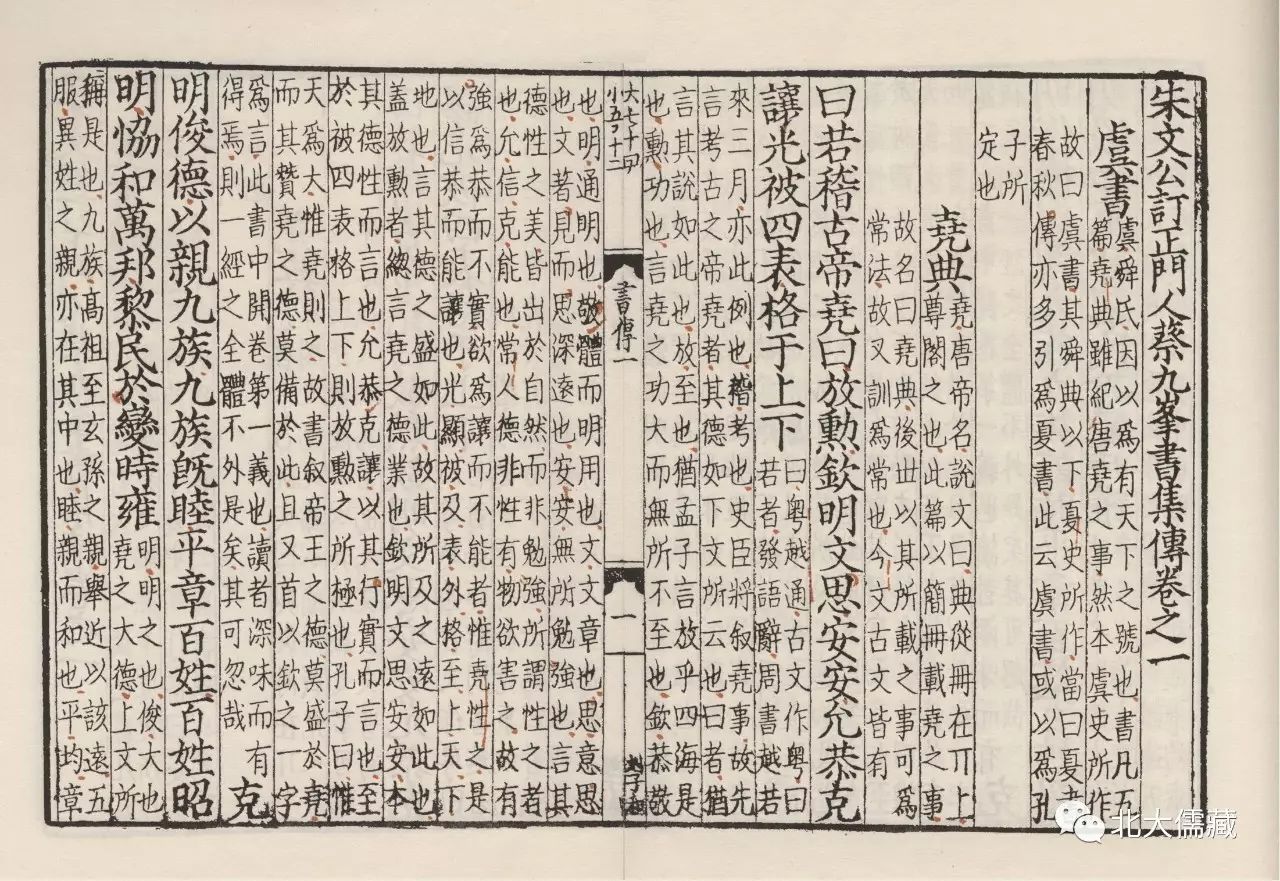 朱文公訂正門人蔡九峯書集傳卷之一
虞書
虞舜氏因以爲有天下之號也書凡五
篇堯典雖紀唐堯之事然本虞史所作
故曰虞書其舜典以下夏史所作當曰夏書
春秋傳亦多引爲夏書此云虞書或以爲孔
子所
定也
堯典
堯唐帝名說文曰典從冊在丌上
尊閣之也此篇以簡冊載堯之事
故名曰堯典後世以其所載之事可爲
常法故又訓爲常也今文古文皆有
曰若稽古帝堯曰放勳欽明文思安安允恭克
讓光被四表格于上下
曰粵越通古文作粵曰
若者發語辭周書越若
來三月亦此例也稽考也史臣將叙堯事故先
言考古之帝堯者其德如下文所云也曰者猶
言其說如此也放至也猶孟子言放乎四海是
也勳功也言堯之功大而無所不至也欽恭敬
大七十四
書傳一
一
也明通明也敬體而明用也文文章也思意思
也文著見而思深遠也安安無所勉強也言其
德性之美皆出於自然而非勉強所謂性之者
也允信克能也常人德非性有物欲害之故有
強爲恭而不實欲爲讓而不能者惟堯性之是
以信恭而能讓也光顯被及表外格至上天下
地也言其德之盛如此故其所及之遠如此也
蓋放勳者總言堯之德業也欽明文思安安本
其德性而言也允恭克讓以其行實而言也至
於被四表格上下則放勳之所極也孔子曰惟
天爲大惟堯則之故書叙帝王之德莫盛於堯
而其贊堯之德莫備於此且又首以欽之一字
爲言此書中開卷第一義也讀者深味而有
得焉則一經之全體不外是矣其可忽哉
克
明俊德以親九族九族旣睦平章百姓百姓昭
明協和萬邦黎民於變時雍
明明之也俊大也
堯之大德上文所
稱是也九族高祖至玄孫之親舉近以該遠五
服異姓之親亦在其中也睦親而和也平均章
北大儒藏